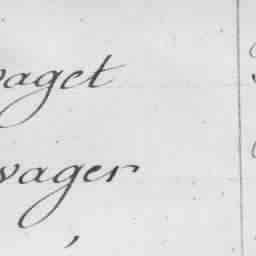 vaget
vager